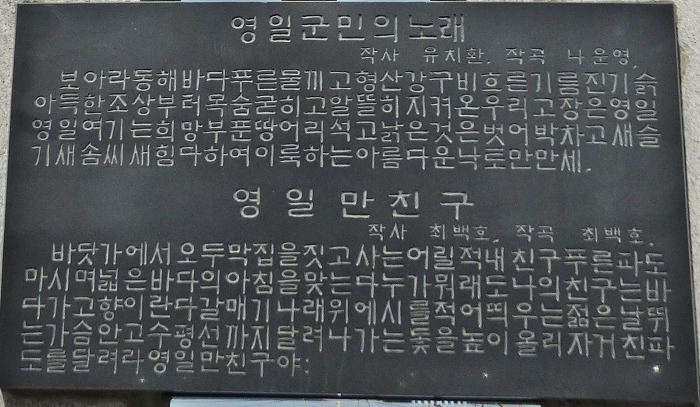 영일군민의노래
작사 유치환. 작곡 나운영.
보아라동해바다푸른물끼고형산강구비흐른기름진기슭
아득한조상부터목숨굳히고알뜰히지켜온우리고장은영일
영일여기는희망부푼땅어리석고낡은것은벗어박차고새슬
기새솜씨새힘다하여이룩하는아름다운낙토만만세.
영일만친구
작사 최백호. 작곡 최백호.
바닷가에서오두막집을짓고사는어릴적내친구푸른파도
마시며넓은바다의아침을맞는다누가뭐래도나의친구는바
다가고향이란다갈매기나래위에시를적어띄우는젊은날뛰
는가슴안고수평선까지달려나가는돛을높이올리자거친파
도를달려라영일만친구야: